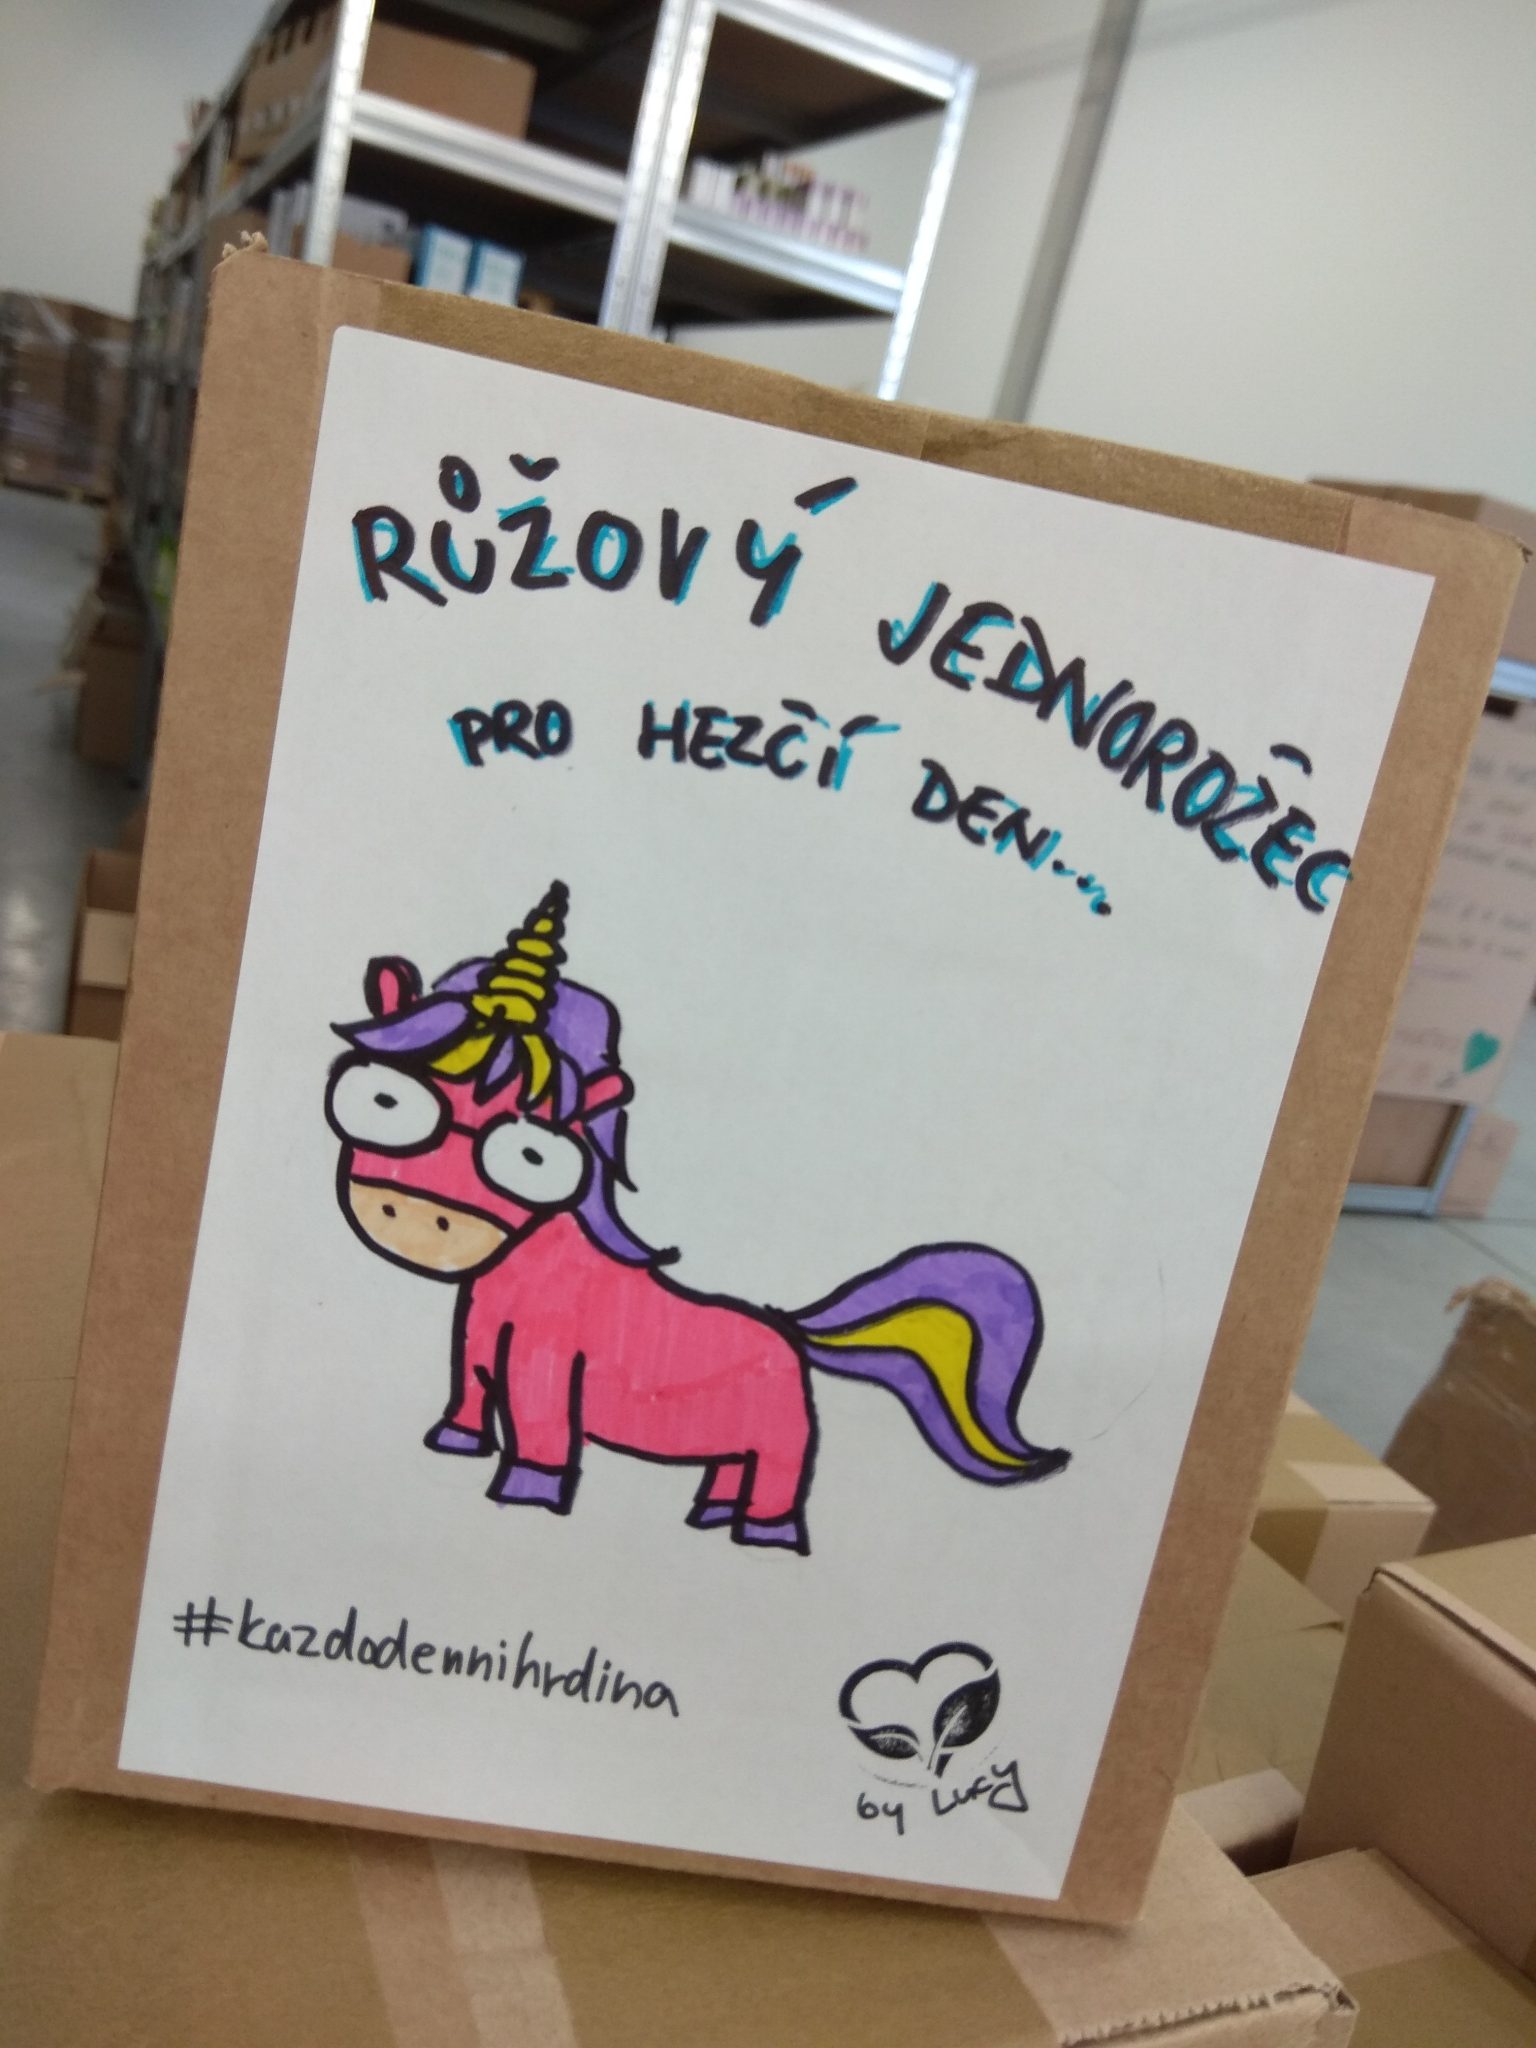 RŮŽOVÝ JEDNOROŽEC
PRO HEZČÍ DEN...
#kazdodennihrdina
by Lucy